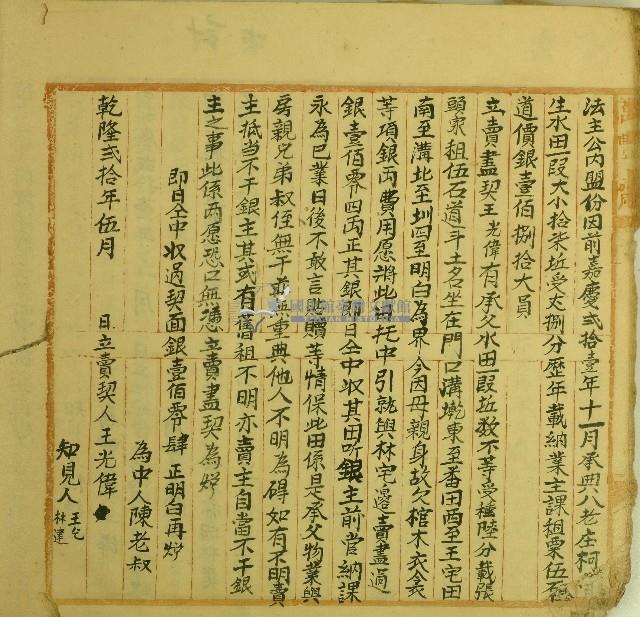 法主公內盟份因前嘉慶貳拾壹年十一月承典八老庄柯
生水田一段大小拾柒坵受丈捌分歷年載納業主課租粟伍石
道價銀壹佰捌拾大員
立賣盡契王光偉有承父水田一段坵数不等受種陸分載張
頭家租伍石道斗土名坐在門口溝墘東至番田西至王宅田
南至溝北至圳四至明白為界今因母親身故欠棺木衣衾
等項銀両費用愿將此田托中引就與林宅邊賣盡過
銀壹佰零四両正其銀即日仝中收其田听銀主前管納課
永為己業日後不敢言貼贖等情保此田係是承父物業與
房親兄弟叔侄無干並無重典他人不明為碍如有不明賣
主抵当不干銀主其或有舊租不明亦賣主自當不干銀
主之事此係両愿恐口無憑立賣盡契為炤
即日仝中收過契面銀壹佰零肆 正明白再炤
為中人陳老叔
乾隆貳拾年伍月 日立賣契人王光偉
知見人 王宅
林達